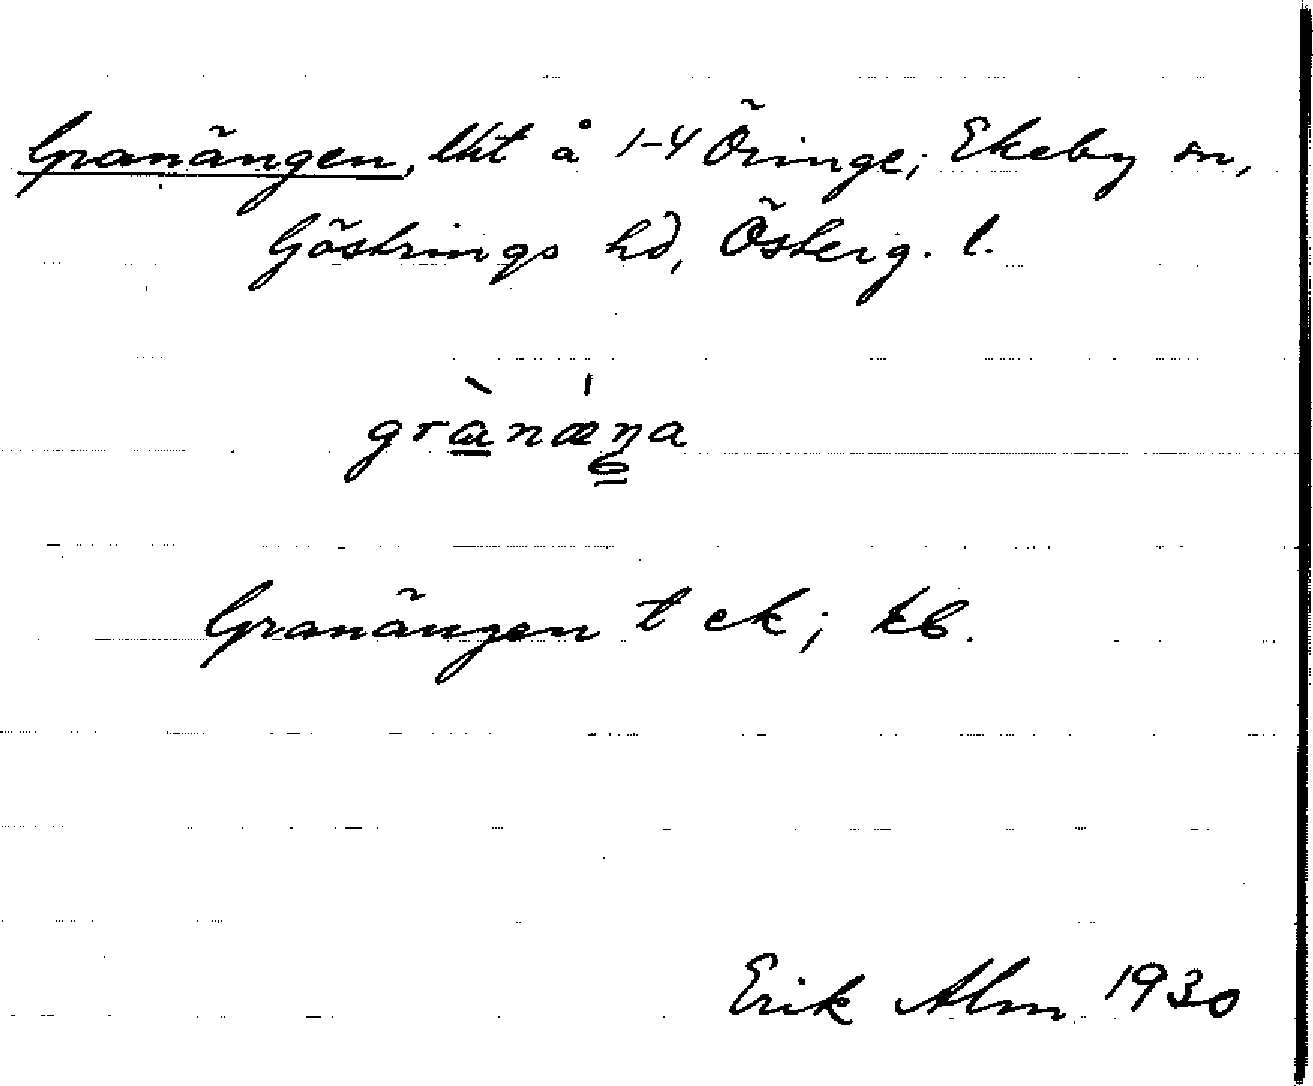 Granängen, lht å 1-4 Öringe; Ekeby sn,
Göstrings hd, Österg. l.
grànǽŋa
Granängen t ek; kb.
Erik Alm 1930